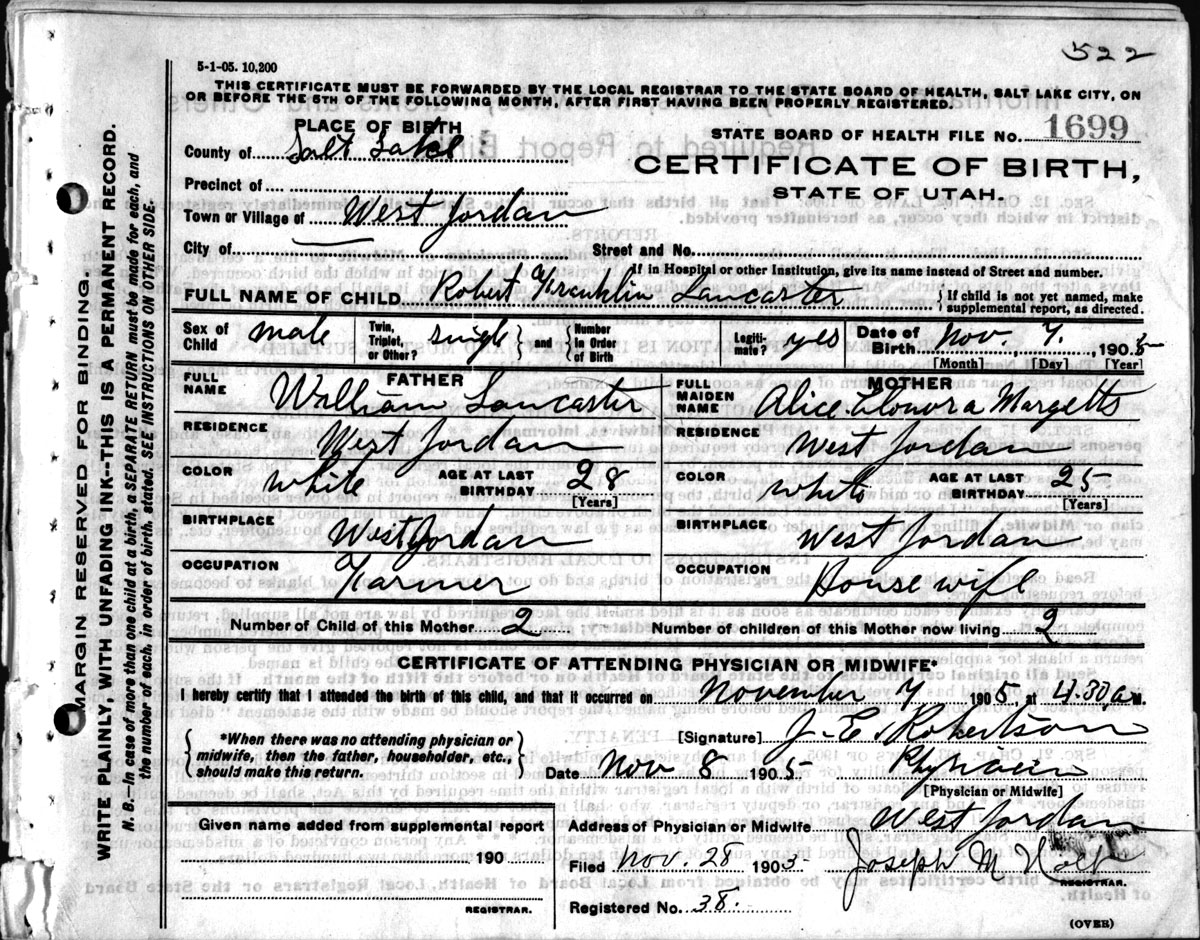 522
5-1-05. 10,200
THIS CERTIFICATE MUST BE FORWARDED BY THE LOCAL REGISTRAR TO THE STATE BOARD OF HEALTH, SALT LAKE CITY, ON
OR BEFORE THE 5TH OF THE FOLLOWING MONTH, AFTER FIRST HAVING BEEN PROPERLY REGISTERED.
PLACE OF BIRTH
STATE BOARD OF HEALTH FILE NO. 1699
County of Salt Lake
CERTIFICATE OF BIRTH,
STATE OF UTAH.
Precinct of
Town or Village of West Jordan
City of Street and No.
If in Hospital or other Institution, give its name instead of Street and number.
FULL NAME OF CHILD Robert Franklin Lancaster { If child is not yet named, make supplemental report, as directed.
Sex of Child male Twin, Triplet, or Other? single } and { Number in Order of Birth Legitimate? yes Date of Birth Nov. 7, 1905
[Month] [Day] [Year]
FATHER MOTHER
FULL NAME William Lancaster FULL MAIDEN NAME Alice Elonora Margetts
RESIDENCE West Jordan RESIDENCE West Jordan
COLOR white AGE AT LAST BIRTHDAY 28 [Years] COLOR white AGE AT LAST BIRTHDAY 25 [Years]
BIRTHPLACE West Jordan BIRTHPLACE West Jordan
OCCUPATION Farmer OCCUPATION House wife
Number of Child of this Mother 2 Number of children of this Mother now living 2
CERTIFICATE OF ATTENDING PHYSICIAN OR MIDWIFE*
I hereby certify that I attended the birth of this child, and that it occurred on November 7 1905, at 4.30, a m.
{ *When there was no attending physician or midwife, then the father, householder, etc., should make this return. }
[Signature] J. E. Robertson
Date Nov 8 1905 Physician
[Physician or Midwife]
Given name added from supplemental report
Address of Physician or Midwife West Jordan
190
Filed Nov. 28 1905 Joseph M Holt
REGISTRAR.
REGISTRAR.
Registered No. 38.
(OVER)
MARGIN RESERVED FOR BINDING.
WRITE PLAINLY, WITH UNFADING INK--THIS IS A PERMANENT RECORD.
N. B.—In case of more than one child at a birth, a SEPARATE RETURN must be made for each, and
the number of each, in order of birth, stated. SEE INSTRUCTIONS ON OTHER SIDE.